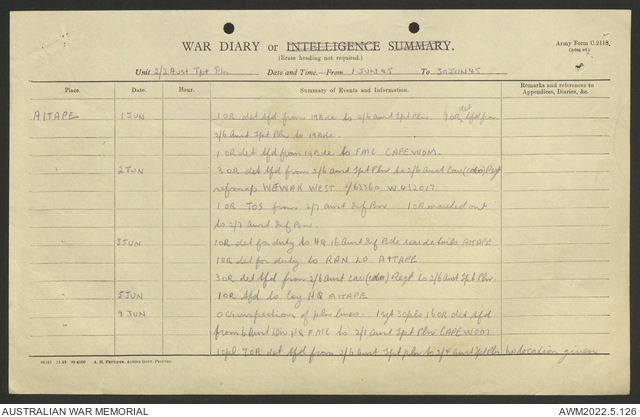 WAR DIARY or INTELLIGENCE SUMMARY.
(Erase heading not required.)
Army Form C.2118.
Unit 2/2 Aust Tpt Pln Date and Time—From 1 JUN 45 To 30 JUN 45
Place. Date. Hour. Summary of Events and Information. Remarks and references to Appendices, Diaries, &c.
AITAPE 1 JUN 1 OR det tfd from 19 Bde to 2/6 Aust Tpt Pln. 1 OR det tfd from
2/6 Aust Tpt Pln to 19 Bde.
1 OR det tfd from 19 Bde to FMC CAPE WOM.
2 JUN 3 OR det tfd from 2/6 Aust Tpt Pln to 2/6 Aust Cav (Cdo) Regt
ref map WEWAK WEST
1 OR TOS from 2/7 Aust Inf Bn 1 OR marched out
to 2/7 Aust Inf Bn.
3 JUN 1 OR det for duty to HQ 16 Aust Inf Bde rear details AITAPE
1 OR det for duty to RAN LO AITAPE
3 OR det tfd from 2/6 Aust Cav (Cdo) Regt to 2/6 Aust Tpt Pln.
5 JUN 1 OR tfd to Coy HQ AITAPE
9 JUN OC inspection of pln lines. 1 Sgt 3 Cpls 16 OR det tfd
from 6 Aust Div HQ FMC to 2/1 Aust Tpt Pln CAPE WOM
1 Cpl 7 OR det tfd from 2/6 Aust Tpt Pln to 2/4 Aust Tpt Pln No location given
AUSTRALIAN WAR MEMORIAL
AWM2022.5.126